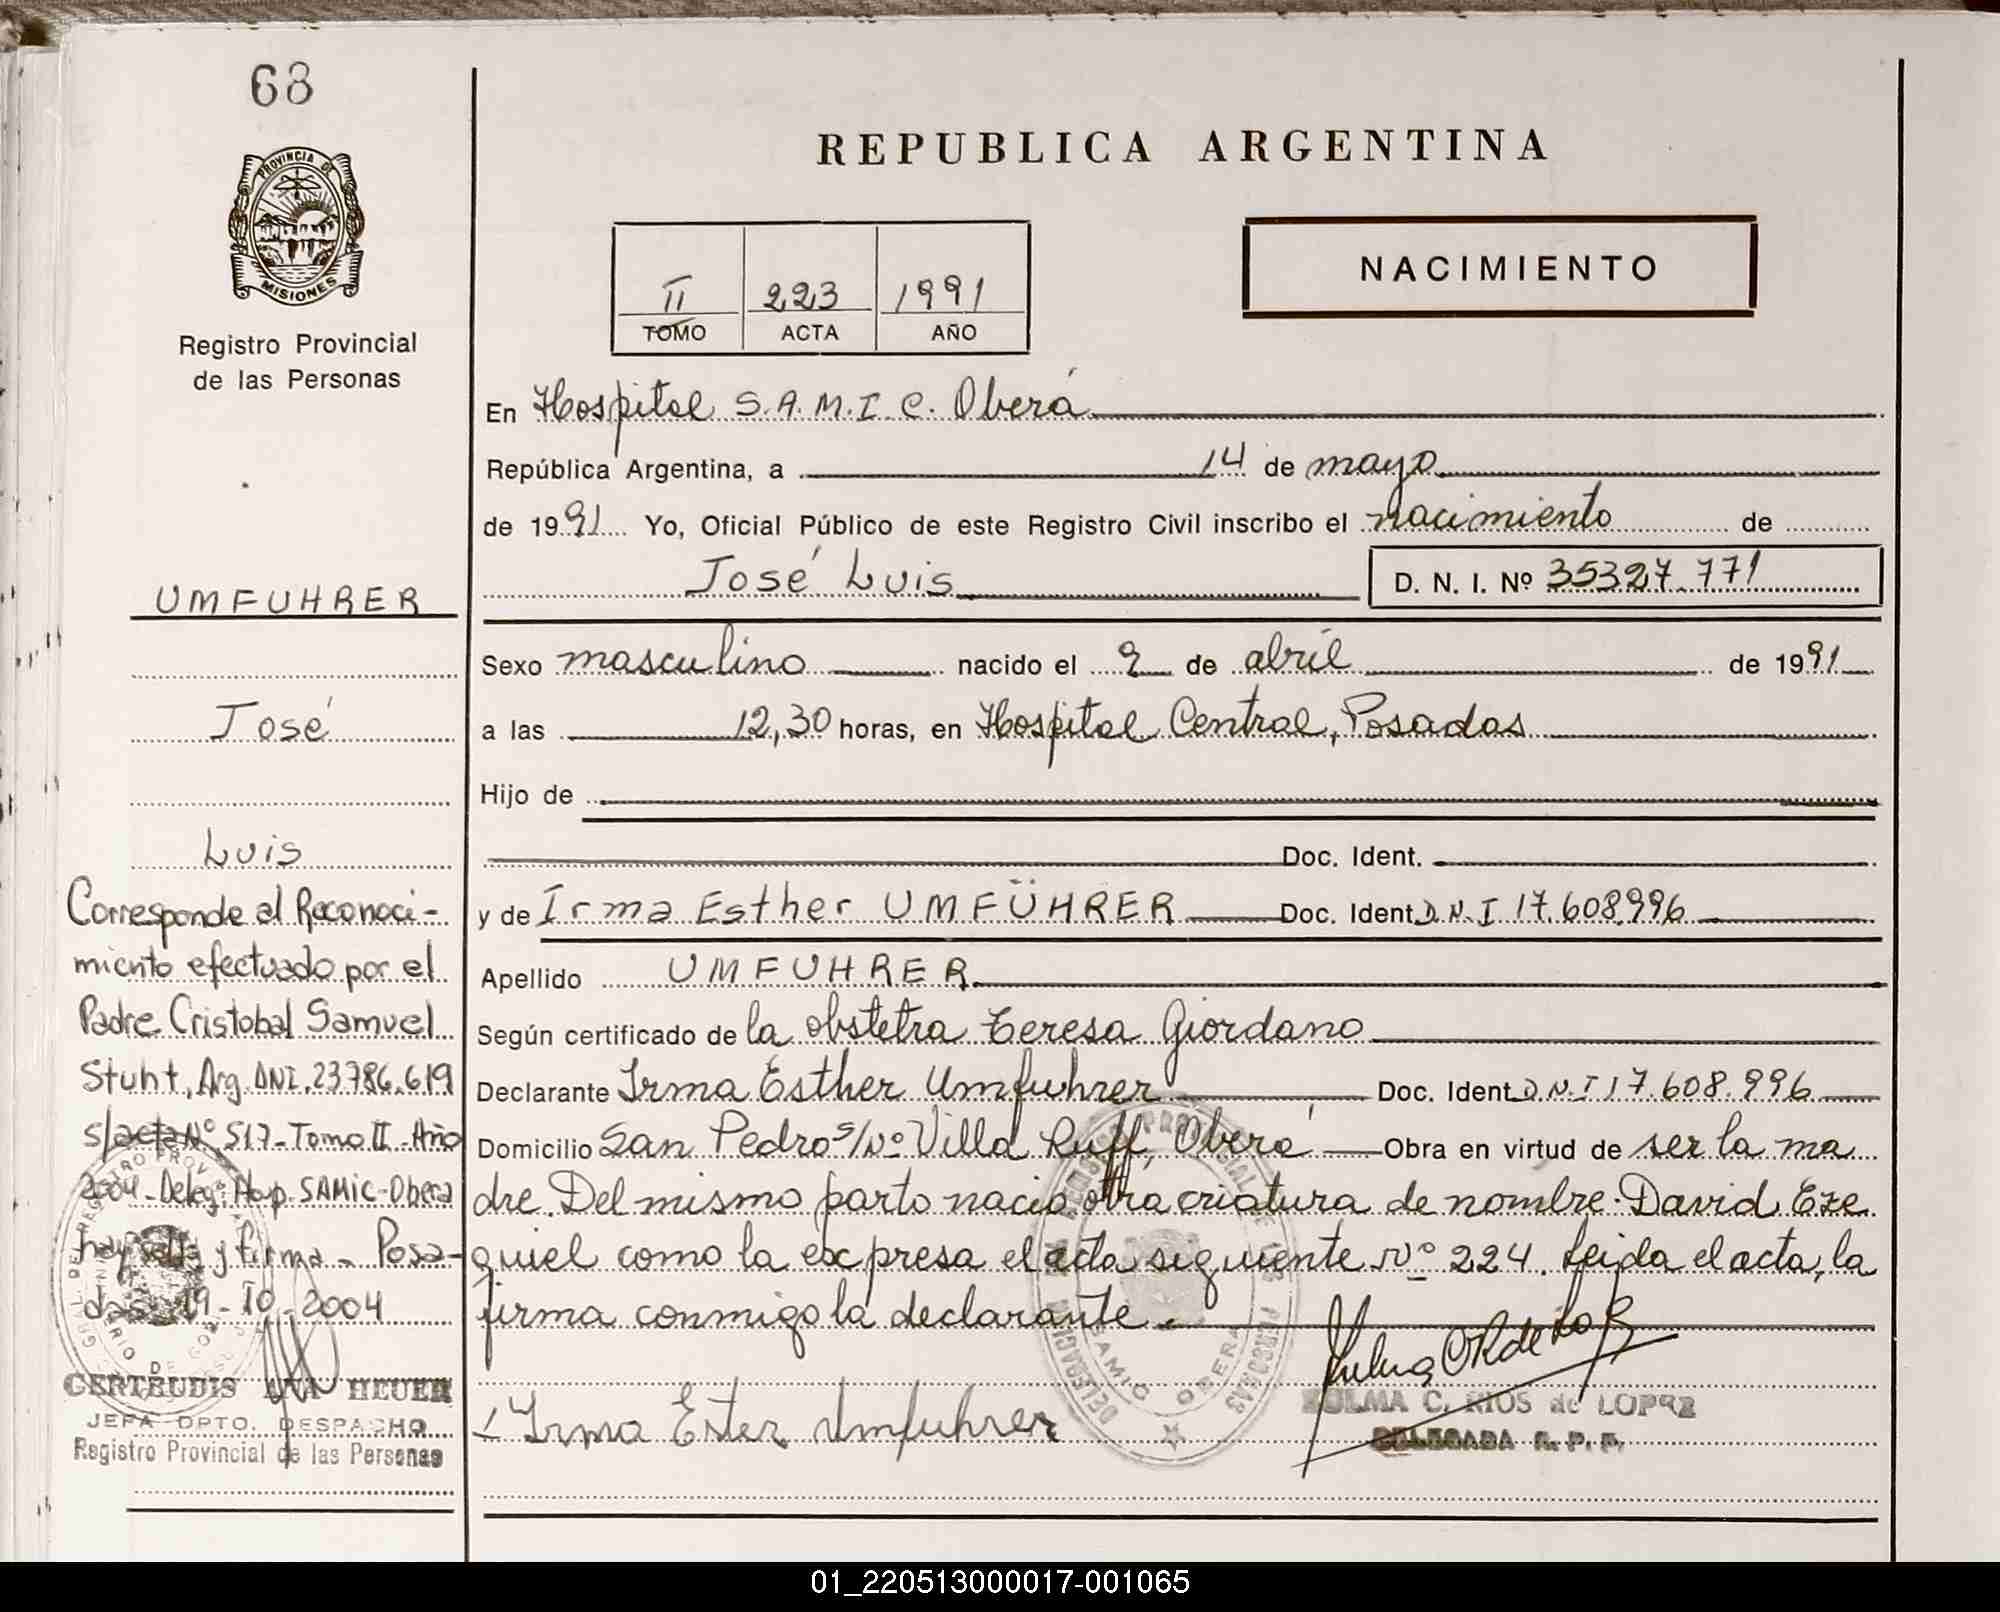 68
PROVINCIA DE
MISIONES
Registro Provincial
de las Personas
UMFUHRER
José
Luis
Corresponde al Reconoci-
miento efectuado por el
Padre Cristobal Samuel
Stuht, Arg. DNI. 23.786.619
s/acta Nº 517 - Tomo II - Año
2004 - Deleg: Hosp. SAMIC - Obera
hay sello y firma - Posa-
das 19 - IV - 2004
GERTRUDIS ANA HEUER
JEFA DPTO. DESPACHO
Registro Provincial de las Personas
REPUBLICA ARGENTINA
II 223 1991
TOMO ACTA AÑO
NACIMIENTO
En Hospital S.A.M.I.C. Oberá
República Argentina, a 14 de mayo
de 1991 Yo, Oficial Público de este Registro Civil inscribo el nacimiento de
José Luis D. N. I. Nº 35327.771
Sexo masculino nacido el 9 de abril de 1991
a las 12,30 horas, en Hospital Central, Posadas
Hijo de
Doc. Ident.
y de Irma Esther UMFÜHRER Doc. Ident. D.N.I 17.608.996
Apellido UMFUHRER
Según certificado de la obstetra Teresa Giordano
Declarante Irma Esther Umfuhrer Doc. Ident. D.N.I 17.608.996
Domicilio San Pedro s/Nº Villa Ruff, Oberá Obra en virtud de ser la ma
dre. Del mismo parto nació otra criatura de nombre: David Eze
quiel como la expresa el acta siguiente Nº 224. Leida el acta, la
firma conmigo la declarante.
Irma Ester Umfuhrer
ZULMA C. RIOS de LOPEZ
DELEGADA R. P. P.
SAMIC OBERA
01_220513000017-001065